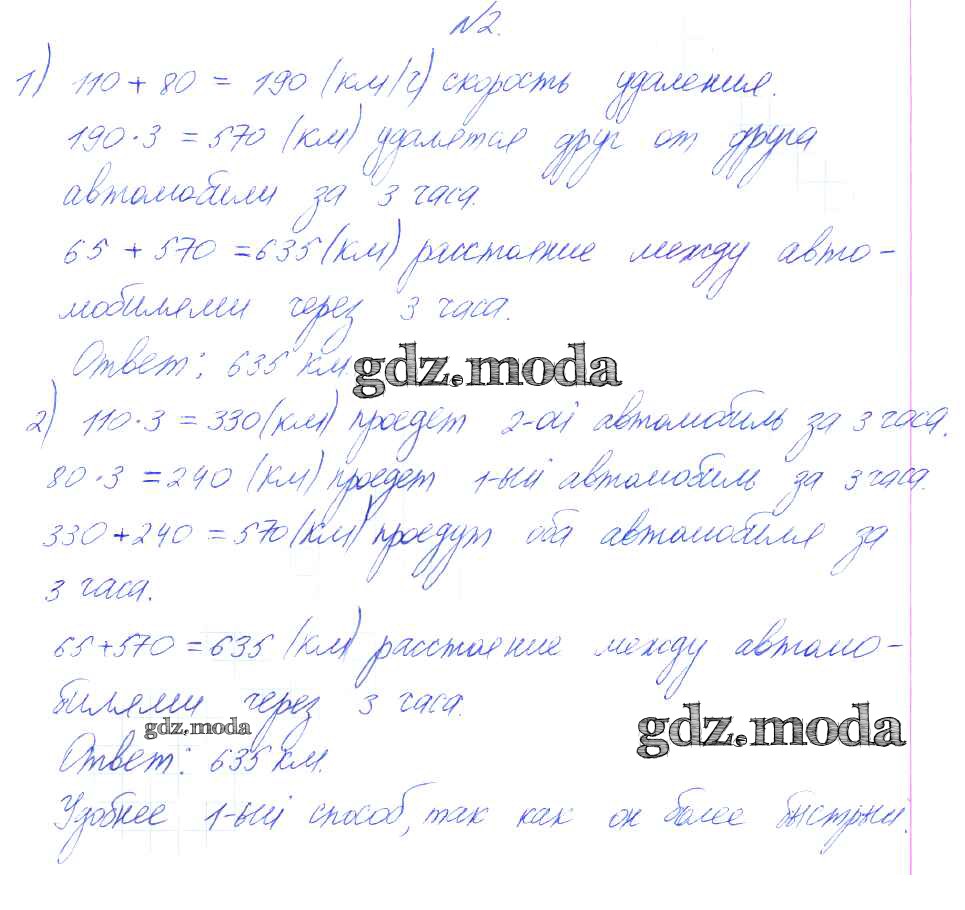 №2.
1) 110 + 80 = 190 (км/ч) скорость удаления.
190·3 = 570 (км) удалятся друг от друга
автомобили за 3 часа.
65 + 570 = 635 (км) расстояние между авто-
мобилями через 3 часа.
Ответ: 635 км.
gdz.moda
2) 110·3 = 330 (км) проедет 2-ой автомобиль за 3 часа.
80·3 = 240 (км) проедет 1-ый автомобиль за 3 часа.
330+240 = 570 (км) проедут оба автомобиля за
3 часа.
65+570 = 635 (км) расстояние между автомо-
билями через 3 часа.
gdz.moda
gdz.moda
Ответ: 635 км.
Удобнее 1-ый способ, так как он более быстрый.